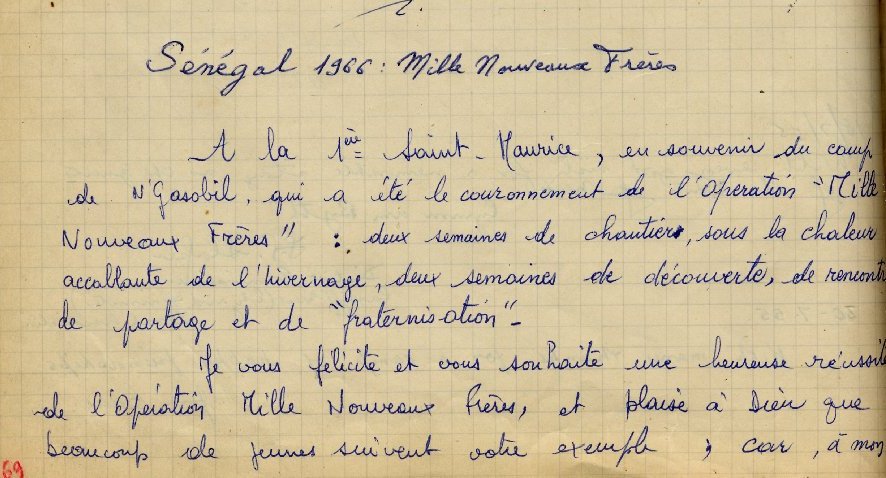 2.
Sénégal 1966 : Mille Nouveaux Frères
A la 1ère Saint-Maurice, en souvenir du camp
de N'Gasobil, qui a été le couronnement de l'Operation "Mille
Nouveaux Frères" : deux semaines de chantier, sous la chaleur
accablante de l'hivernage, deux semaines de découverte, de rencontr
de partage et de "fraternis-ation" -
Je vous félicite et vous souhaite une heureuse réussit
de l'Opération Mille Nouveaux Frères, et plaise à Dieu que
beaucoup de jeunes suivent votre exemple ; car, à mon
69